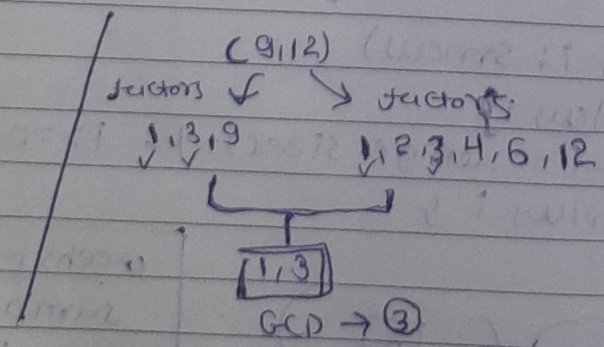 (9,12)
factors factors
1, 3, 9 1, 2, 3, 4, 6, 12
1, 3
GCD → 3